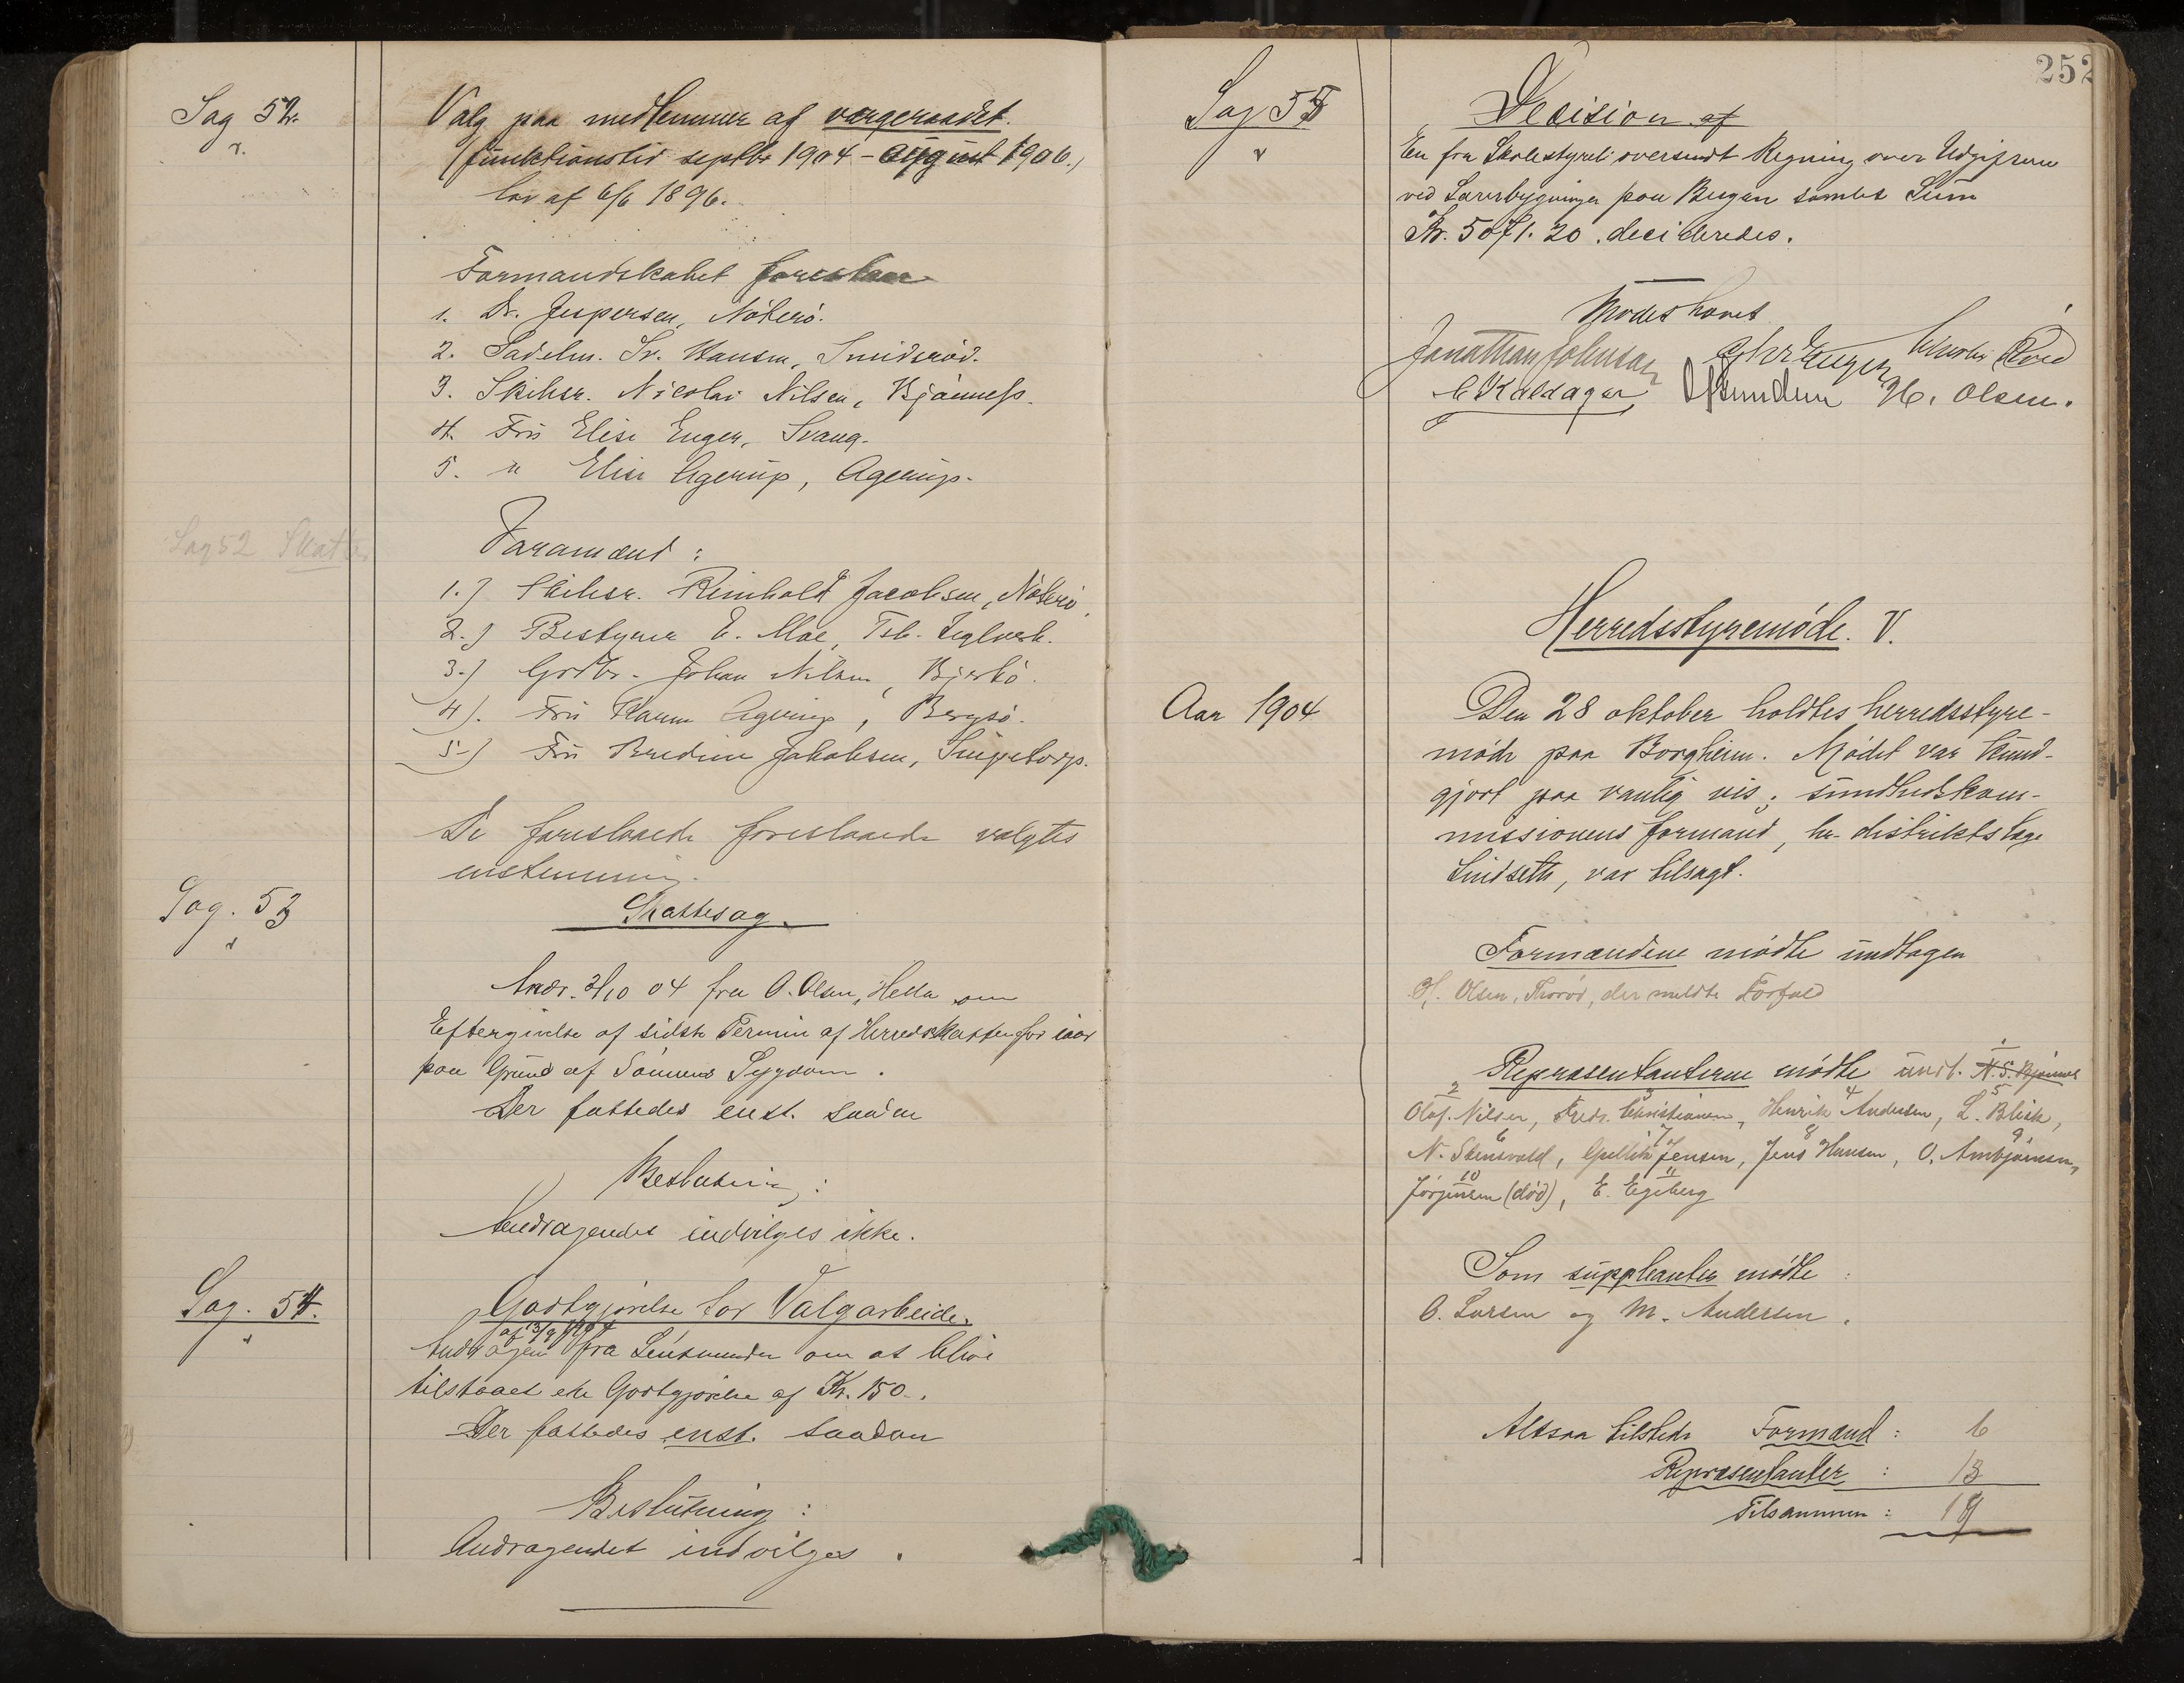 Sag 52.
Valg paa medlemmer af vergeraadet.
(funktionstid septbr 1904 - august 1906.)
lov af 6/6 1896.
Formandskabet foreslaar
1. Dr. Jespersen, Nøterø.
2. Sadelm. Sv. Hansen, Smidsrød.
3. Skibsr. Nicolai Nilsen, Bjønness.
4. Fru Elise Enger, Svang.
5. " Elise Agerup, Agerup.
Sag 52 Skatte
Varamænd :
1.) Skibsr. Reinholdt Jacobsen, Nøterø
2.) Bestyrer E. Moe, Tsb. Teglverk.
3.) Grdbr. Johan Nilsen, Bjerkø.
4). Fru Agerup, Bergsø.
5.) Fru Bredine Jakobsen, Snipetorp.
De foreslaaede foreslaaede valgtes
enstemmig.
Sag. 53
Skattesag.
Andr. 3/10 04 fra O. Olsen, Hella om
Eftergivelse af sidste Termin af Herredsskatten for iaar
paa Grund af Sønnens Sygdom.
Der fattedes enst. saadan
Beslutning :
Andragendet indvilges ikke.
Sag. 54.
Godtgjørelse for Valgarbeide.
af 13/9 1904
Andragen fra Lensmanden om at blive
tilstaaet en Godtgjørelse af Kr. 150.
Der fattedes enst. saadan
Beslutning :
Andragendet indvilges.
252
Sag 55
Decision af
En fra Skolestyret oversendt Regning over Udgifterne
ved paa samlet Sum
Kr. 5071.20. decideredes.
Mødet hævet
Jonathan Johnsen Chr Enger
H. Olsen.
Herredsstyremøde. V.
Aar 1904
Den 28 oktober holdtes herredsstyre-
møde paa Borgheim. Mødet var kund-
gjort paa vanlig vis; sundhedskom-
missionens formand, hr. distriktslæge
Lindseth, var tilsagt.
Formændene mødte undtagen
H. Olsen, Thorød, der meldte Forfald
1
Repræsentanterne mødte undt. N. S. Bjønnes
2 3 4 5
Olaf Nilsen, Fredr. Christiansen, Henrik Andersen, L. Blik,
6 7 8 9
N. Stensvold, Gullik Jensen, Jens Hansen, O. Ambjørnsen,
10 11
Jørgensen (død), E. Egeberg
Som suppleanter mødte :
O. Larsen og M. Andersen.
Altsaa tilstede Formænd : 6
Repræsentanter : 13
Tilsammen : 19